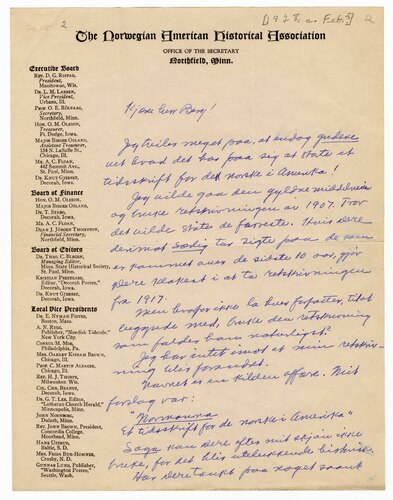 2
[1928, a. Feb. 2] Q
The Norwegian American Historical Association
OFFICE OF THE SECRETARY
Northfield, Minn.
Executive Board
REV. D. G. RISTAD,
President,
Manitowoc, Wis.
DR. L. M. LARSEN,
Vice President,
Urbana, Ill.
PROF. O. E. RÖLVAAG,
Secretary,
Northfield, Minn.
HON. O. M. OLESON,
Treasurer,
Ft. Dodge, Iowa.
MAJOR BIRGER OSLAND,
Assistant Treasurer,
134 N. LaSalle St.,
Chicago, Ill.
MR. A. C. FLOAN,
St. Paul, Minn.
DR. KNUT GJERSET,
Decorah, Iowa.
Board of Finance
HON. O. M. OLESON,
MAJOR BIRGER OSLAND,
DR. T. STABO,
Decorah, Iowa.
MR. A. C. FLOAN,
DEAN J. JÖRGEN THOMPSON,
Financial Secretary,
Northfield, Minn.
Board of Editors
DR. THEO. C. BLEGEN,
Managing Editor,
Minn. State Historical Society,
St. Paul, Minn.
KRISTIAN PRESTGARD,
Editor, "Decorah Posten,"
Decorah, Iowa.
DR. KNUT GJERSET,
Decorah, Iowa.
Local Vice Presidents
Boston, Mass.
A. N. RYGG,
Publisher, "Nordisk Tidende,"
New York City.
CONSUL M. MOE,
Philadelphia, Pa.
Chicago, Ill.
PROF. C. MARTIN ALSAGER,
Chicago, Ill.
REV. H. J. THORPE,
Milwaukee, Wis.
CH. CHR. BRANDT,
Decorah, Iowa.
DR. G. T. LEE, Editor,
"Lutheran Church Herald,"
Minneapolis, Minn.
Duluth, Minn.
REV. JOHN BROWN, President,
Concordia College,
Moorhead, Minn.
Crosby, N. D.
GUNNAR LUND, Publisher,
"Washington Posten,"
Seattle, Wash.
Kjære Buslett Berg!
Jeg tviler meget paa, at endog gudene
vet hvad det har paa sig at starte et
tidsskrift for det norske i Amerika!
Jeg vilde gaa den gyldne middelvei
og bruke retskrivningen av 1907. Tror
det vilde støte de færreste. Hvis dere
derimot særlig tar sigte paa de som
er kommet over de sidste 10 aar, gjør
dere klokest i at ta retskrivningen
fra 1917.
Men hvorfor ikke la hver forfatter, til at
begynde med, bruke den retskrivning
som falder ham naturligst?
Jeg har intet imot at min retskriv-
ning blir forandret.
Navnet er en kilden affære. Mit
forslag var:
"Normanna
Et tidsskrift for de norske i Amerika"
Saga kan dere efter mit skjøn ikke
bruke, for det blir utelukkende historisk.
Har dere tænkt paa noget saant